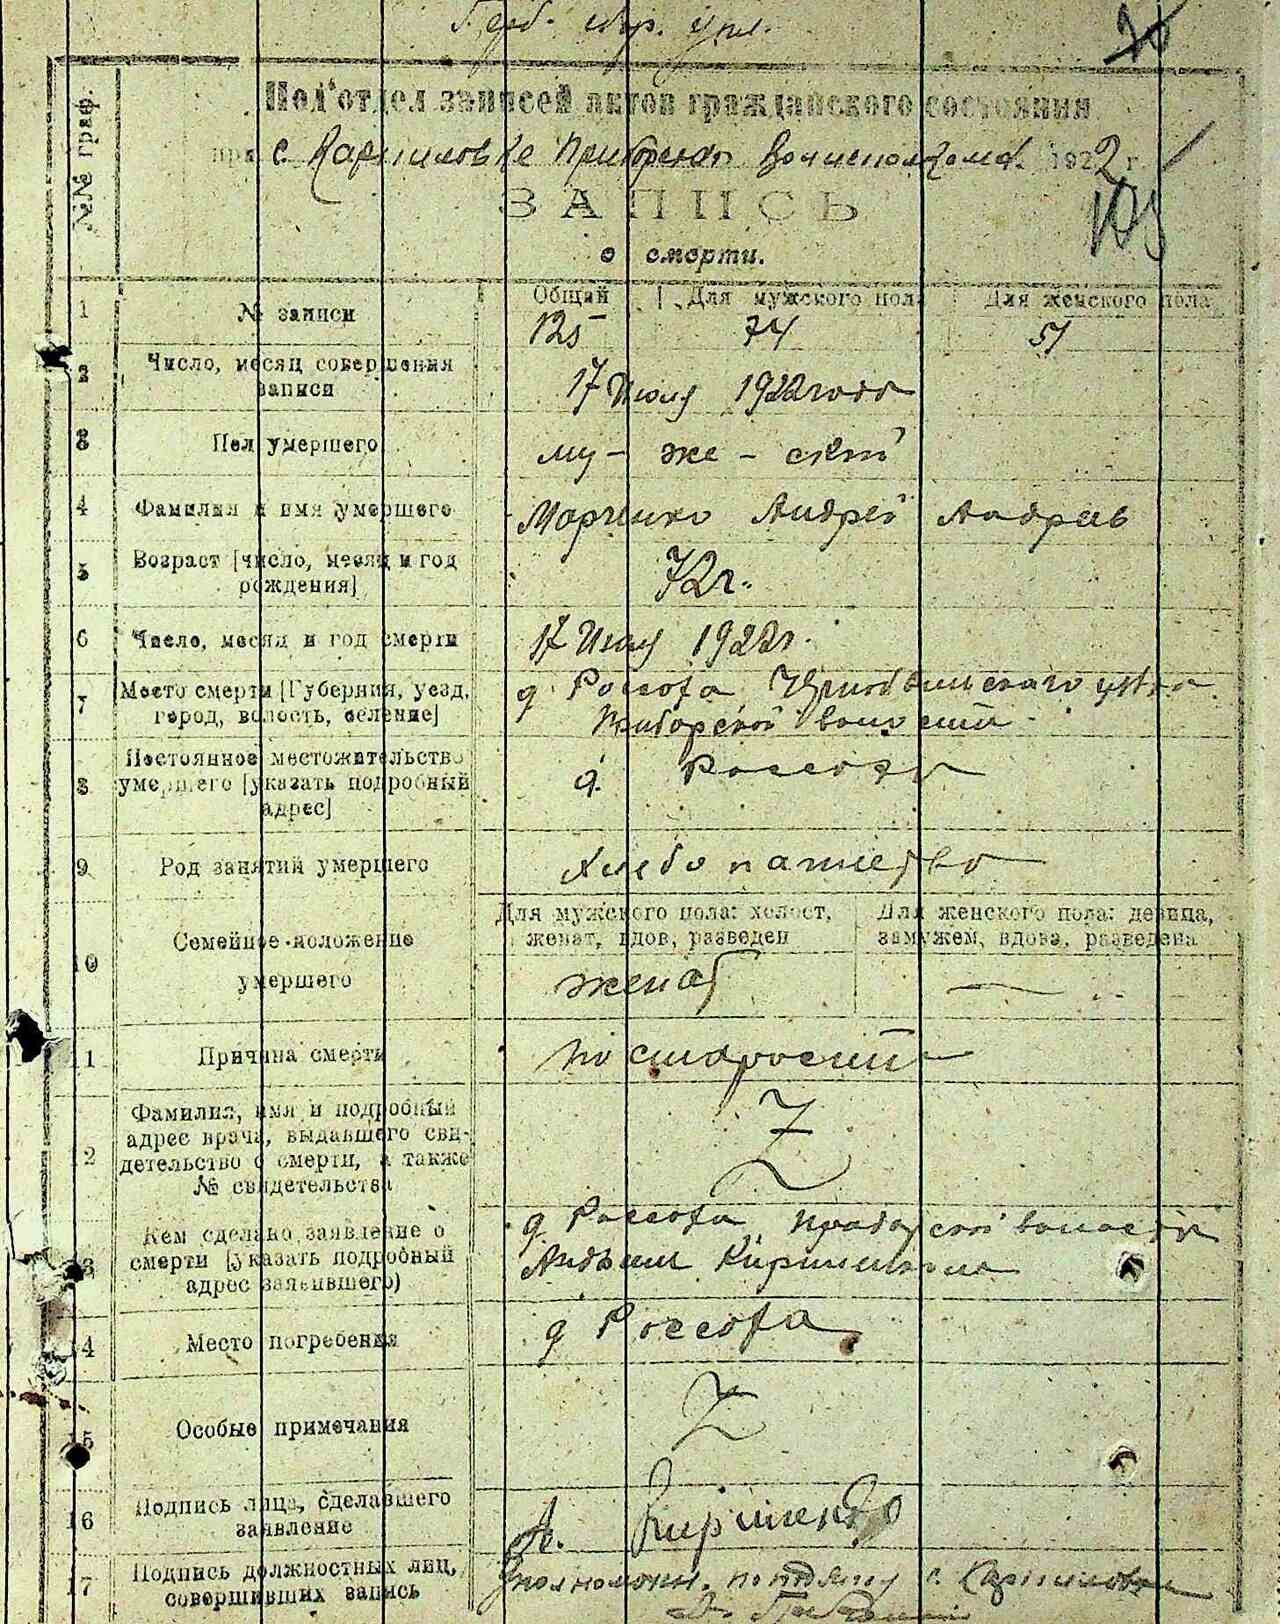 Герб. сбор. упл.
№№ граф.
Под'отдел записей актов гражданского состояния
при с. Карпиловке Приборском Волисполкома 1922 г.
105
ЗАПИСЬ
о смерти.
1 № записи Общий Для мужского пола Для женского пола
125 74 51
2 Число, месяц совершения
записи
17 Июля 1922 года
3 Пол умершего му-же-ский
4 Фамилия и имя умершего Марченко Андрей Андреев
5 Возраст [число, месяц и год
рождения]
72 г.
6 Число, месяц и год смерти 17 Июля 1922 г.
7 Место смерти [Губерния, уезд,
город, волость, селение]
д. Россоха Чернобыльского уезда
Приборской волости
8 Постоянное местожительство
умершего [указать подробный
адрес]
д. Россоха
9 Род занятий умершего Хлебопашество
10 Семейное положение
умершего
Для мужского пола: холост,
женат, вдов, разведен
Для женского пола: девица,
замужем, вдова, разведена
женат
11 Причина смерти по старости
12 Фамилия, имя и подробный
адрес врача, выдавшего сви-
детельство о смерти, а также
№ свидетельства
Z
13 Кем сделано заявление о
смерти [указать подробный
адрес заявившего)
д. Россоха Приборской волости
14 Место погребения д Россоха
15 Особые примечания
Z
16 Подпись лица, сделавшего
заявление
А. Кириченко
17 Подпись должностных лиц,
совершивших запись
Уполномочен. по с. Карпиловке